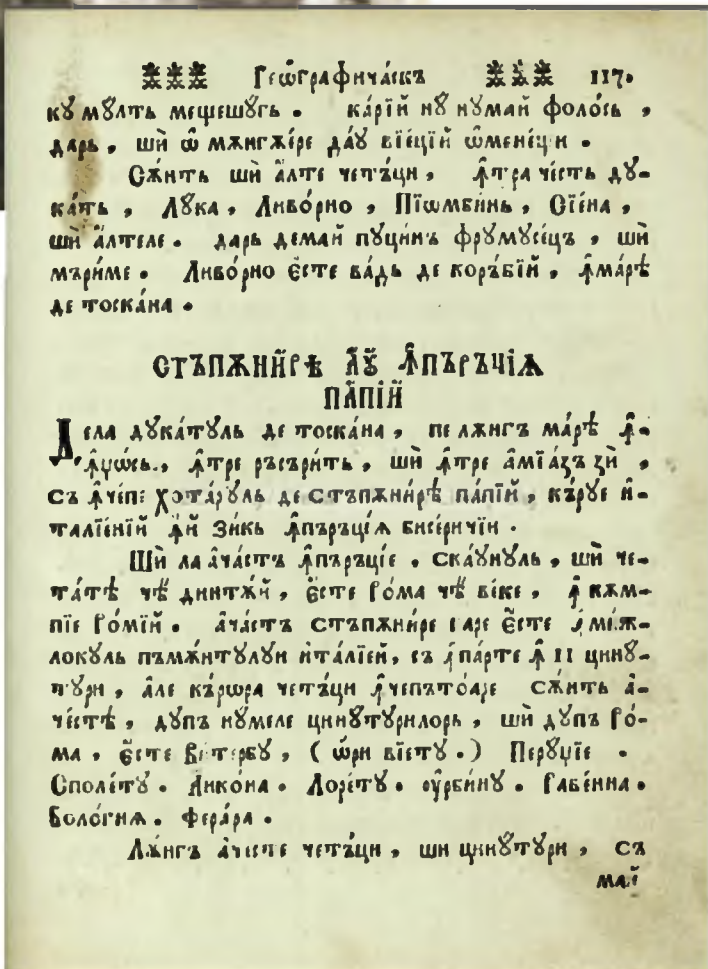 Геѡ́графичⷭ҇къ 117.
кꙋ мꙋлть мещешꙋгь . ка́рїй нꙋ нꙋмай фоло́сь ,
дарь , шѝ ѡ҆ мѫнгѫ́ере да́ꙋ вїе́цїй ѡ҆мене́щи .
Сѫ́нть шѝ а҆́лте четъ́ци , ꙟ҆тра че́сть дꙋ-
ка́ть , Лꙋ́ка , Ливо́рно , Пїѡмби́нь , Сїе́на ,
шѝ а҆́лтеле . дарь демай пꙋци́нъ фрꙋмꙋсе́цъ , шѝ
мъри́ме . Ливо́рно є҆́сте ва́дь де коръ́бїй , ꙟ҆маре́ѣ
де тоска́на .
СТЪПѪНИ́РѢ ЛꙊ́Й ꙞПЪРЪЧІѦ
ПА́ПІЙ
Дела дꙋка́тꙋль де тоска́на , пе лѫнгъ ма́рѣ ꙟ҆-
ꙟ҆ѱѡ́сь , ꙟ҆тре ръсъри́ть , шѝ ꙟ҆тре а҆мїа́ꙁъ ꙁи ,
съ ꙟ҆че́пе хота́рꙋль де стъпѫни́рѣ па́пїй , къ́рꙋе и҆-
талїе́нїй ꙟ҆́й ꙁи́кь ꙟ҆пъръці́ѧ бисеричі́й .
Шѝ ла а҆ча́стъ ꙟ҆пъръці́е , ска́ꙋнꙋль , шѝ че-
та́тѣ чѣ динтѫ́й , є҆́сте Ро́ма чѣ ве́ке , ꙟ҆ кѫм-
пїе Ро́мїй . а҆ча́стъ стъпѫни́ре каре є҆́сте ꙟ҆ мѣ́ж-
локꙋль пъмѫ́нтꙋлꙋи и҆та́лїей , съ ꙟ҆па́рте ꙟ҆ 11 цинꙋ-
тꙋри , а҆́ле къ́рѡра четъ́ци ꙟ҆чепътоа́ре сѫ́нть а҆-
че́стѣ , дꙋпъ нꙋ́меле цинꙋтꙋрилорь , шѝ дꙋпъ Ро́-
ма , є҆́сте Вите́рбꙋ , ( ѡ҆ри вїетꙋ . ) Перꙋ́ціе .
Споле́тꙋ . А҆нко́на . Лоре́тꙋ . ᲂу҆рби́нꙋ . Раве́нна .
Боло́гнѧ . Фера́ра .
Лѫ́нгъ а҆че́сте четъ́ци , шѝ цинꙋтꙋри , съ
май